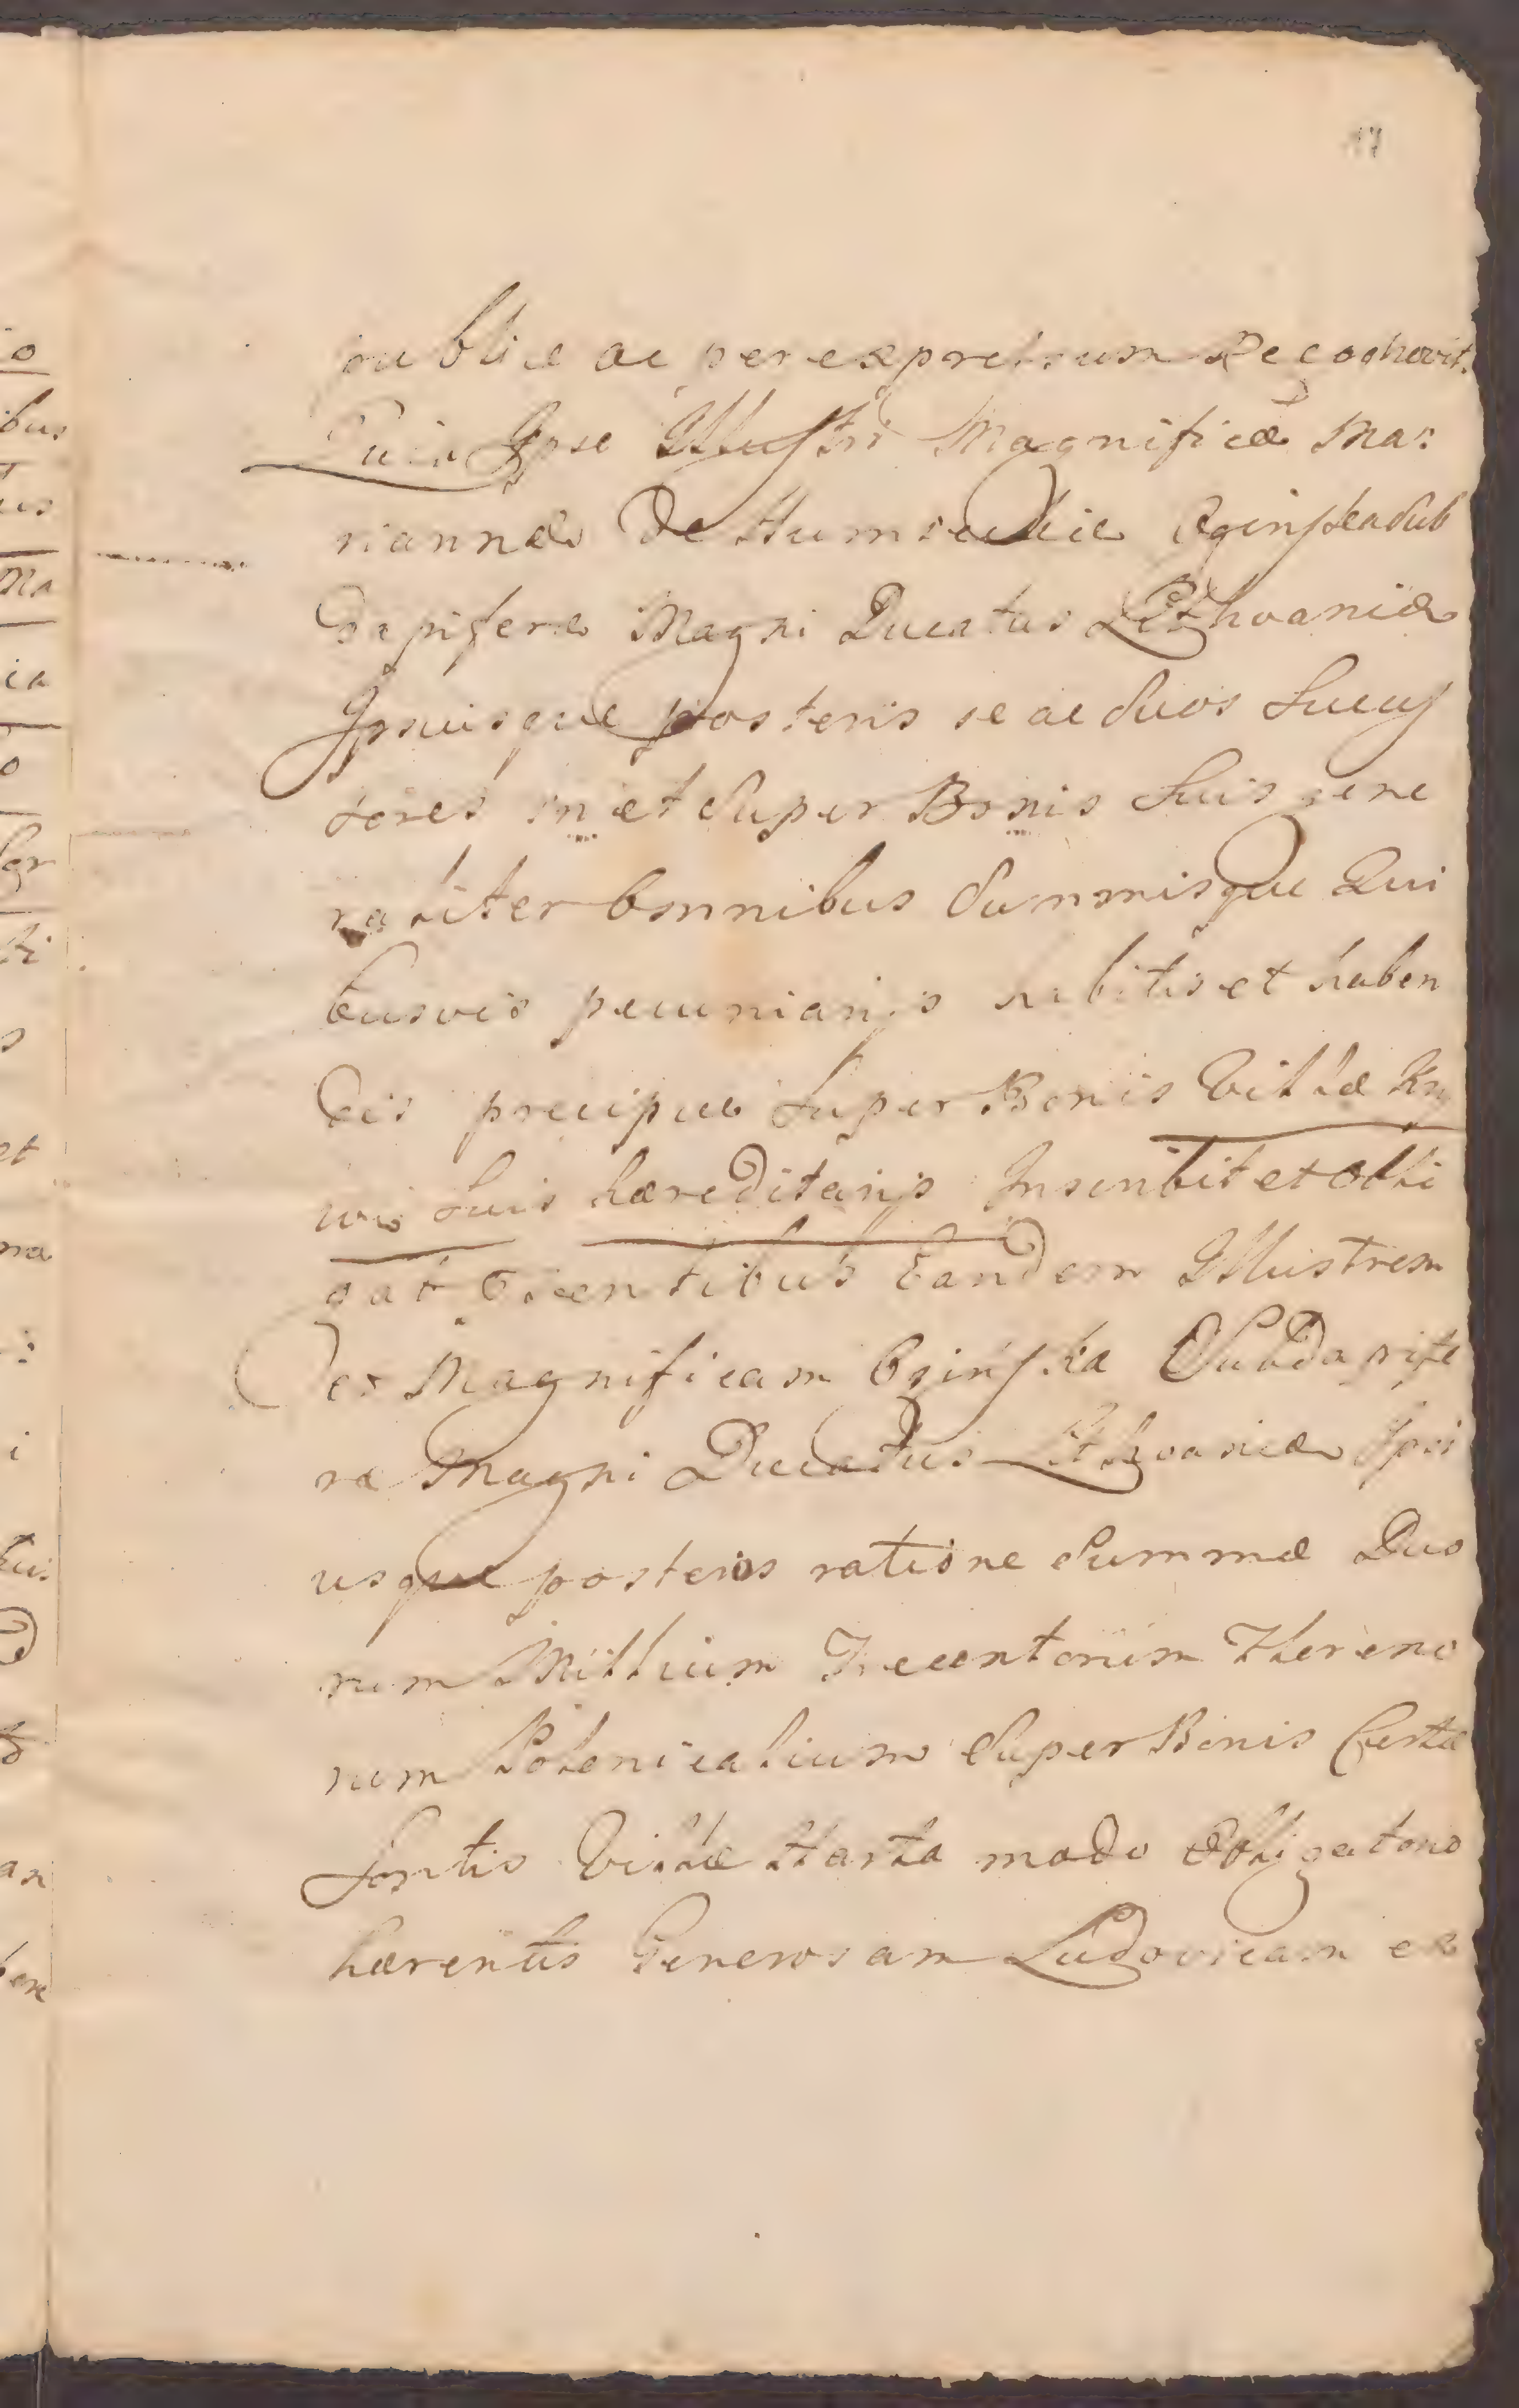 17
publice ac per expressum Recognovit.
Quia Ipse Illustri Magnificæ Ma:
riannæ De Humieckie Oginska Sub
Dapiferæ Magni Ducatus Lithvaniæ
Ipsiusque posteris se ac Suos Sucess
sores in et Super Bonis Suis gene
raliter Omnibus Summisque Qui
busvis pecuniarijs habitis et haben
dis precipue Super Bonis Villæ
Suis hæreditarijs Inscribit et obli
gat Eisentibus Eandem Illustrem
et Magnificam Oginska SubDapife
ræ Magni Ducatus Lithvaniæ Ipsi
usque posteros ratione Summæ Duo
rum Millium Trecentorum Floreno
rum Polonicalium Super Bonis Certæ
Sortis Villæ Harta modo Obligatorio
hærentis Generosam Ludovicam ex